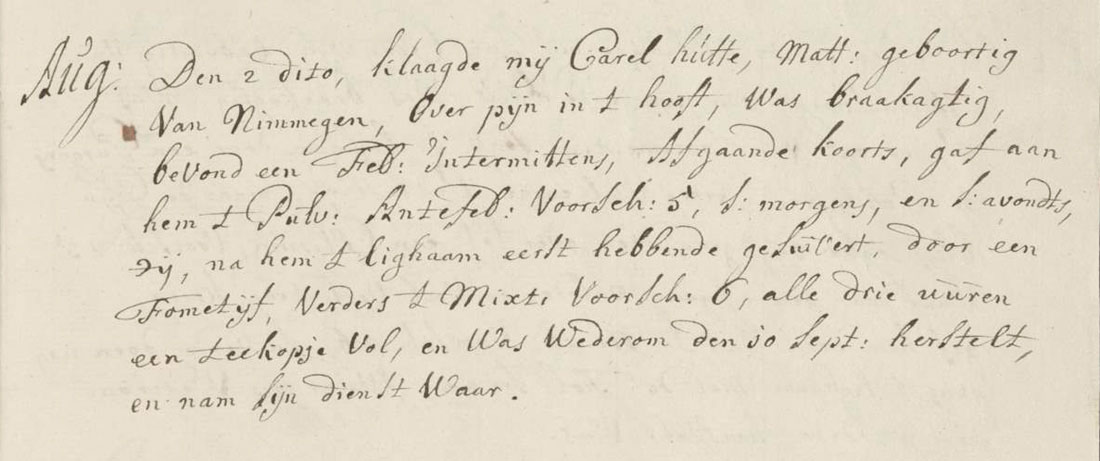 Aug: Den 2 dito, klaagde mij Carel hutte, Matt: geboortig
Van Nimmegen, Over pijn in t hooft, Was braakagtig,
bevond een Feb: Intermittens, Afgaande koorts, gaf aan
hem t Pulv: Antefeb: Voorsch: 5, s: morgens, en s: avondts,
ʒij, na hem t lighaam eerst hebbende gesuivert, door een
Fometijf, Verders t Mixt: Voorsch: 6, alle drie uuren
een teekopje Vol, en Was Wederom den 10 Sept: herstelt,
en nam sijn dienst Waar.